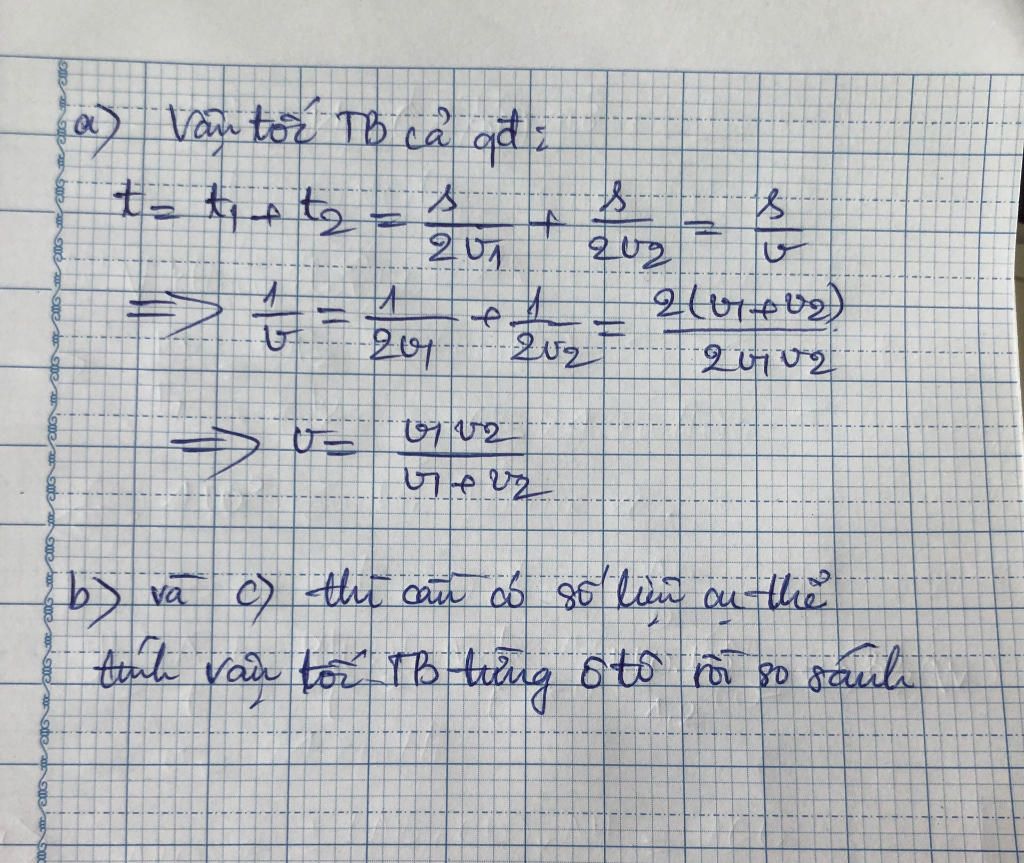 a) Vận tốc TB cả qđ:
t = t1 + t2 = s/2v1 + s/2v2 = s/v
=> 1/v = 1/2v1 + 1/2v2 = 2(v1+v2)/2v1v2
=> v = v1v2/v1+v2
b) và c) thì cần có số liệu cụ thể
tính vận tốc TB từng ô tô rồi so sánh